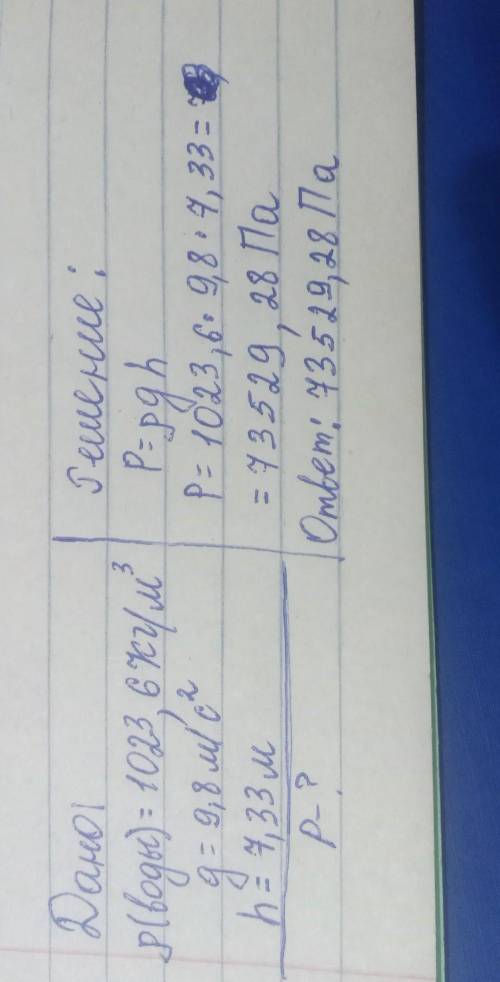 Дано:
р(воды) = 1023,6 кг/м³
g = 9,8 м/с²
h = 7,33 м
Р - ?
Решение:
Р = рgh
Р = 1023,6 · 9,8 · 7,33 =
= 73529,28 Па
Ответ: 73529,28 Па